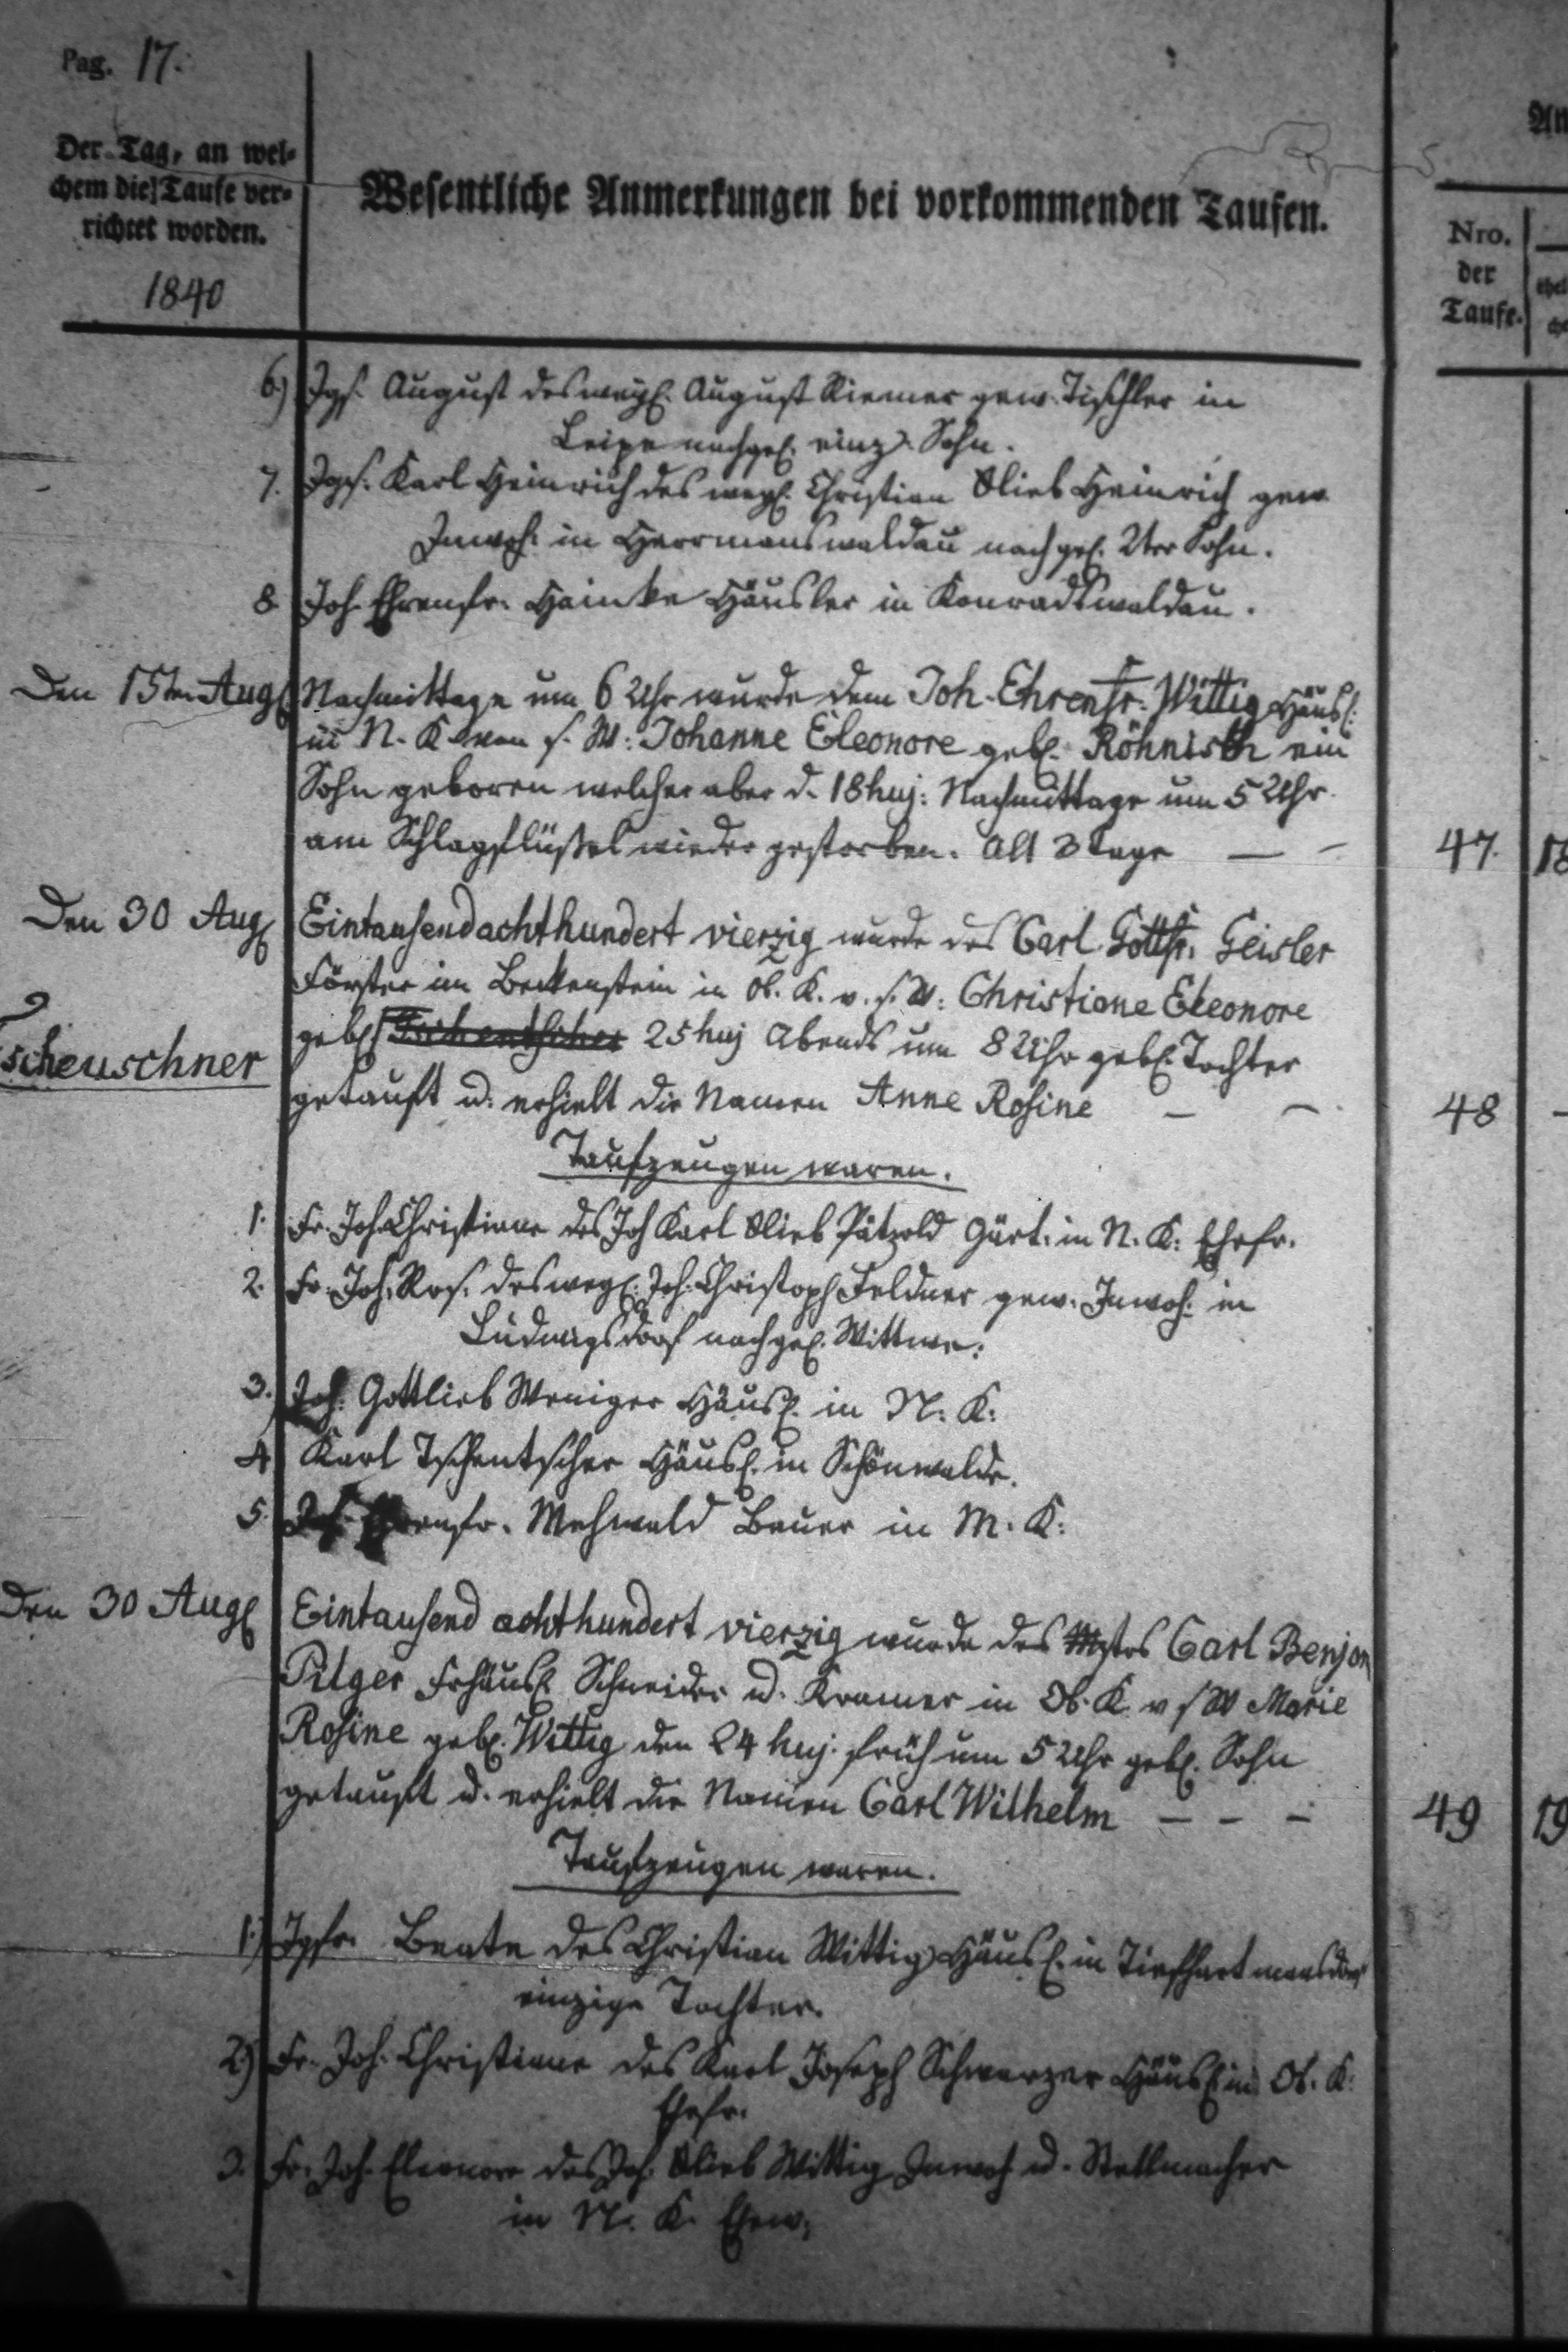 Pag. 17.
Der Tag, an wel-
chem die Taufe ver-
richtet worden.
1840
Wesentliche Anmerkungen bei vorkommenden Taufen.
Nro.
der
Taufe.
6.) Jgs. August des weyl. August Riemer gew. Tischler in
Leipe nachgel. einz. Sohn.
7. Jgs. Karl Heinrich des weyl. Christian Glieb Heinrich gew
Inwoh. in Herrmanswaldau nachgel. 2ter Sohn.
8. Joh. Ehrenfr. Hainke Häusler in Konradswaldau.
Den 15ten Aug Nachmittage um 6 Uhr wurde dem Joh. Ehrenfr. Wittig Häusl.
in N. K. von s. W: Johanne Eleonore geb. Röhnisch ein
Sohn geboren welcher aber d. 18 huj: Nachmittage um 5 Uhr
am Schlagflüßel wieder gestorben. Alt 3 Tage — - 47.
Den 30 Aug Eintausendachthundert vierzig wurde des Carl Gottfr. Geisler
Förster im Beckenstein in Ob. K. v. s. W: Christiane Eleonore
geb. Tschentscher 25 huj Abends um 8 Uhr geb. Tochter
scheuschner
getauft u. erhielt die Namen Anne Rosine — - 48
Taufzeugen waren.
1. Fr. Joh. Christiane des Joh Karl Glieb Pätzold Gärt. in N. K: Ehefr.
2. Fr. Joh. Ros. des weyl. Joh. Christoph Feldner gew. Inwoh. in
Ludwigsdorf nachgel. Wittwe:
3. Joh. Gottlieb Weniger Häusl. in N. K:
4 Karl Tschentscher Häusl. in Schönwalde.
5. Joh. Ehrenfr. Mehwald Bauer in M. K:
Den 30 Aug Eintausend achthundert vierzig wurde des Mstrs Carl Benjam
Pilger Frhäusl. Schneider u. Kramer in Ob. K. v s W Marie
Rosine geb. Wittig den 24 huj. früh um 5 Uhr geb. Sohn
getauft u. erhielt die Namen Carl Wilhelm — - - 49
Taufzeugen waren.
1.) Jgfr. Beate des Christian Wittig Häusl. in Tiefhartmansdorf
einzige Tochter.
2.) Fr. Joh. Christiane des Karl Joseph Schwarzer Häusl. in Ob. K.
Ehefr.
3. Fr. Joh. Eleonore des Joh. Glieb Wittig Inwoh. u. Stellmacher
in N. K. Ehew.